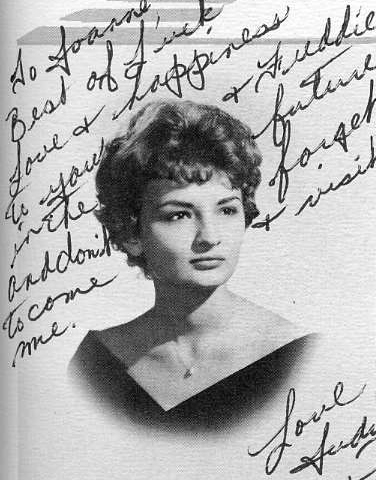 To Joanne,
Best of Luck
Love & happiness
to you & Freddie
in the future
and don't forget
to come & visit
me.
Love
Judy